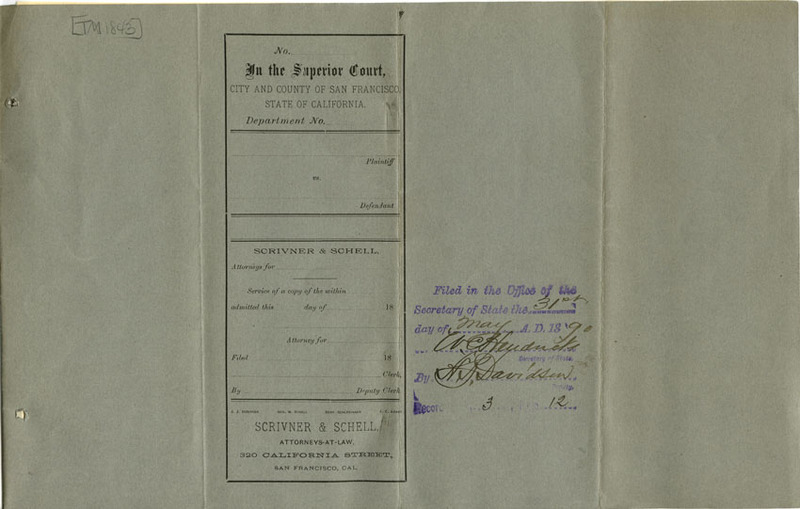 [TM 1843]
No.
In the Superior Court,
CITY AND COUNTY OF SAN FRANCISCO
STATE OF CALIFORNIA.
Department No.
Plaintiff
vs.
Defendant
SCRIVNER & SCHELL,
Attorneys for
Service of a copy of the within
admitted this day of 18
Attorney for
Filed 18
Clerk,
By Deputy Clerk
SCRIVNER & SCHELL,
ATTORNEYS-AT-LAW,
320 CALIFORNIA STREET,
SAN FRANCISCO, CAL.
Filed in the Office of the
Secretary of State the 31st
day of May A. D. 1890
W C Hendricks
Secretary of State.
By Davidson.
Deputy.
Record 3 12